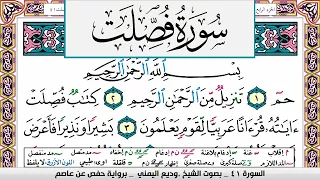 سُورَةُ فُصِّلَتْ
بِسْمِ اللَّهِ الرَّحْمَٰنِ الرَّحِيمِ
حمٓ ١ تَنزِيلٌ مِّنَ الرَّحْمَٰنِ الرَّحِيمِ ٢ كِتَٰبٌ فُصِّلَتْ
ءَايَٰتُهُۥ قُرْءَانًا عَرَبِيًّا لِّقَوْمٍ يَعْلَمُونَ ٣ بَشِيرًا وَنَذِيرًا فَأَعْرَضَ
السورة ٤١ - بصوت الشيخ .وديع اليمني - برواية حفص عن عاصم